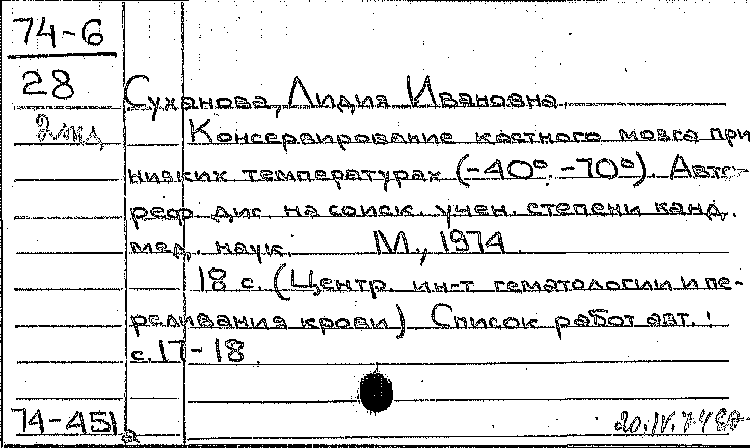 74-6
28
2 экз
Суханова, Лидия Ивановна.
Консервирование костного мозга при
низких температурах (-40°, -70°). Авто-
реф. дис. на соиск. учен. степени канд.
мед. наук. М., 1974.
18 с. (Центр. ин-т гематологии и пе-
реливания крови) Список работ авт.:
с. 17-18.
74-451